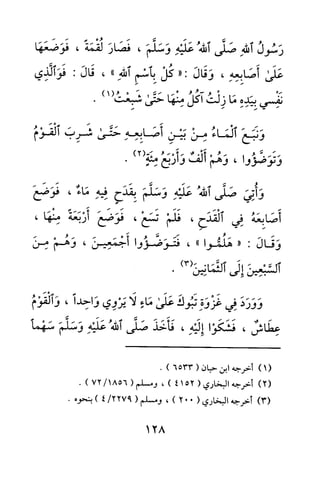 رَسُولُ ٱللهِ صَلَّى ٱللهُ عَلَيْهِ وَسَلَّمَ ، فَصَارَ لُقْمَةً ، فَوَضَعَهَا
عَلَىٰ أَصَابِعِهِ ، وَقَالَ : « كُلْ بِٱسْمِ ٱللهِ » ، قَالَ : فَوَٱلَّذِي
نَفْسِي بِيَدِهِ مَا زِلْتُ آكُلُ مِنْهَا حَتَّىٰ شَبِعْتُ(١) .
وَنَبَعَ ٱلْمَاءُ مِنْ بَيْنِ أَصَابِعِهِ حَتَّىٰ شَرِبَ ٱلْقَوْمُ
وَتَوَضَّؤُوا ، وَهُمْ أَلْفٌ وَأَرْبَعُ مِئَةٍ(٢) .
وَأُتِيَ صَلَّى ٱللهُ عَلَيْهِ وَسَلَّمَ بِقَدَحٍ فِيهِ مَاءٌ ، فَوَضَعَ
أَصَابِعَهُ فِي ٱلْقَدَحِ ، فَلَمْ تَسَعْ ، فَوَضَعَ أَرْبَعَةً مِنْهَا ،
وَقَالَ : « هَلُمُّوا » ، فَتَوَضَّؤُوا أَجْمَعِينَ ، وَهُمْ مِنَ
ٱلسَّبْعِينَ إِلَى ٱلثَّمَانِينَ(٣) .
وَوَرَدَ فِي غَزْوَةِ تَبُوكَ عَلَىٰ مَاءٍ لَا يَرْوِي وَاحِداً ، وَٱلْقَوْمُ
عِطَاشٌ ، فَشَكَوْا إِلَيْهِ ، فَأَخَذَ صَلَّى ٱللهُ عَلَيْهِ وَسَلَّمَ سَهْماً
(١) أخرجه ابن حبان ( ٦٥٣٣ ) .
(٢) أخرجه البخاري ( ٤١٥٢ ) ، ومسلم ( ٧٢/١٨٥٦ ) .
(٣) أخرجه البخاري ( ٢٠٠ ) ، ومسلم ( ٤/٢٢٧٩ ) بنحوه .
١٢٨